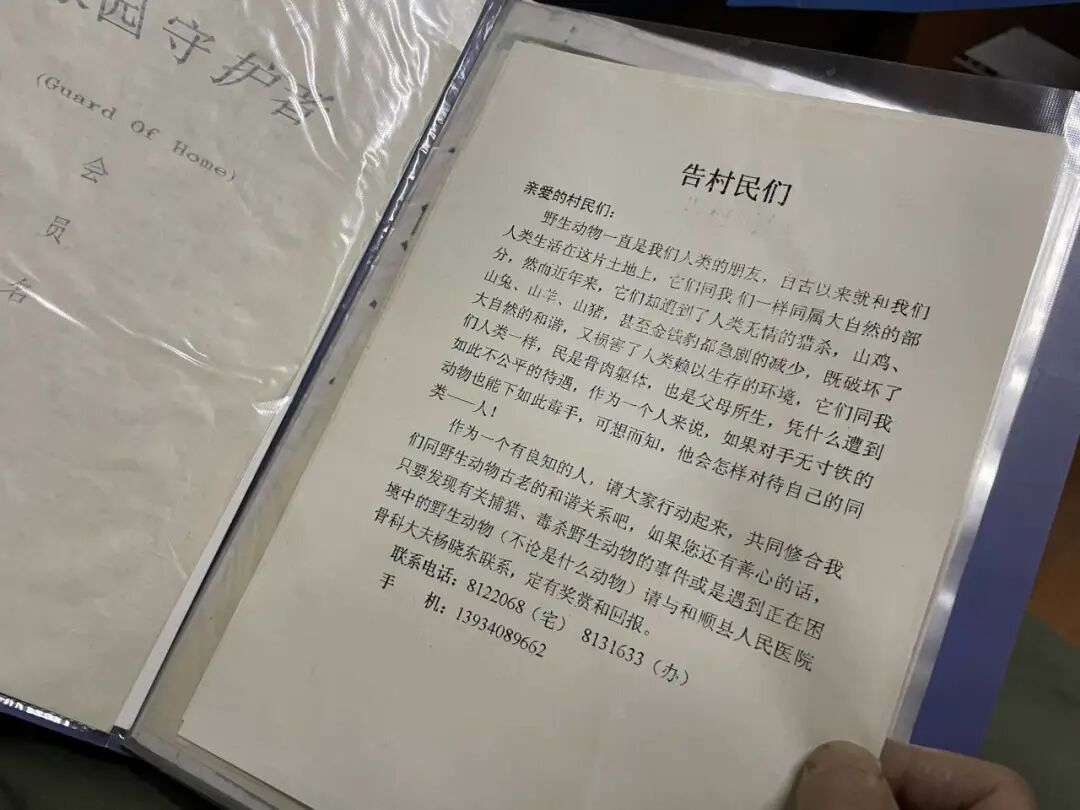 园守护者
(Guard Of Home)
会
员
名
告村民们
亲爱的村民们：
野生动物一直是我们人类的朋友，自古以来就和我们
人类生活在这片土地上，它们同我们一样同属大自然的部
分，然而近年来，它们却遭到了人类无情的猎杀，山鸡、
山兔、山羊、山猪，甚至金钱豹都急剧的减少，既破坏了
大自然的和谐，又损害了人类赖以生存的环境，它们同我
们人类一样，民是骨肉躯体，也是父母所生，凭什么遭到
如此不公平的待遇，作为一个人来说，如果对手无寸铁的
动物也能下如此毒手，可想而知，他会怎样对待自己的同
类——人！
作为一个有良知的人，请大家行动起来，共同修合我
们同野生动物古老的和谐关系吧，如果您还有善心的话，
只要发现有关捕猎、毒杀野生动物的事件或是遇到正在困
境中的野生动物（不论是什么动物）请与和顺县人民医院
骨科大夫杨晓东联系，定有奖赏和回报。
联系电话：8122068（宅） 8131633（办）
手 机：13934089662